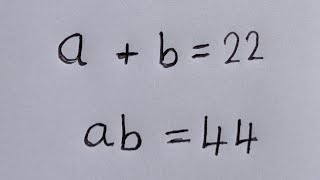 a + b = 22
ab = 44